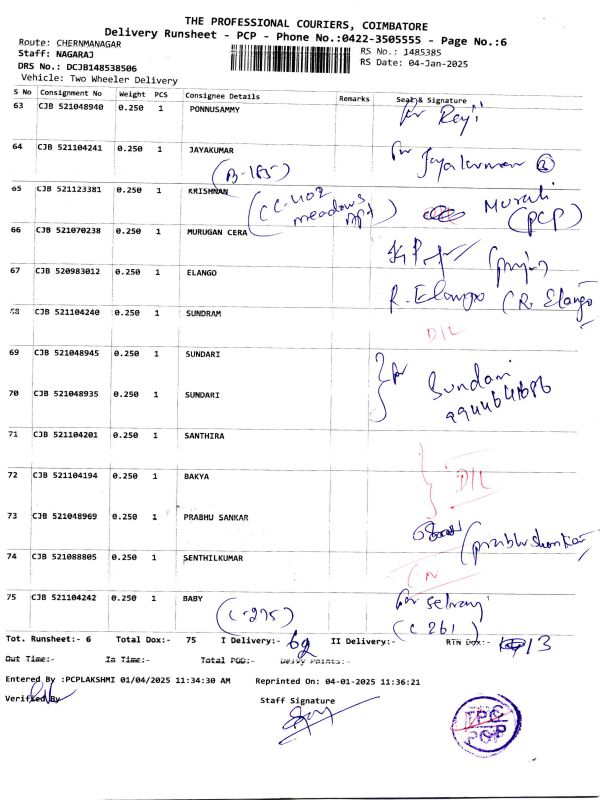 THE PROFESSIONAL COURIERS, COIMBATORE
Delivery Runsheet - PCP - Phone No.:0422-3505555 - Page No.:6
Route: CHERNMANAGAR
Staff: NAGARAJ
RS No.: 1485385
DRS No.: DCJB148538506
RS Date: 04-Jan-2025
Vehicle: Two Wheeler Delivery
S No Consignment No Weight PCS Consignee Details Remarks Seal & Signature
63 CJB 521048940 0.250 1 PONNUSAMMY for Raji
64 CJB 521104241 0.250 1 JAYAKUMAR for Jayakumar
(B-185)
65 CJB 521123381 0.250 1 KRISHNAN (CC-402 meadows Apt) Murali (PCP)
66 CJB 521070238 0.250 1 MURUGAN CERA
67 CJB 520983012 0.250 1 ELANGO R. Elango (R. Elango
68 CJB 521104240 0.250 1 SUNDRAM D/L
69 CJB 521048945 0.250 1 SUNDARI for Sundari
70 CJB 521048935 0.250 1 SUNDARI
71 CJB 521104201 0.250 1 SANTHIRA
72 CJB 521104194 0.250 1 BAKYA D/L
73 CJB 521048969 0.250 1 PRABHU SANKAR (prabhu shankar
74 CJB 521088805 0.250 1 SENTHILKUMAR
75 CJB 521104242 0.250 1 BABY (C-275) for selvaraj
(C 261)
Tot. Runsheet:- 6 Total Dox:- 75 I Delivery:- 62 II Delivery:- RTN Dox:- 13
Out Time:- In Time:- Total POD:- Delvy Points:-
Entered By :PCPLAKSHMI 01/04/2025 11:34:30 AM Reprinted On: 04-01-2025 11:36:21
Verified By
Staff Signature
TPC
PCP